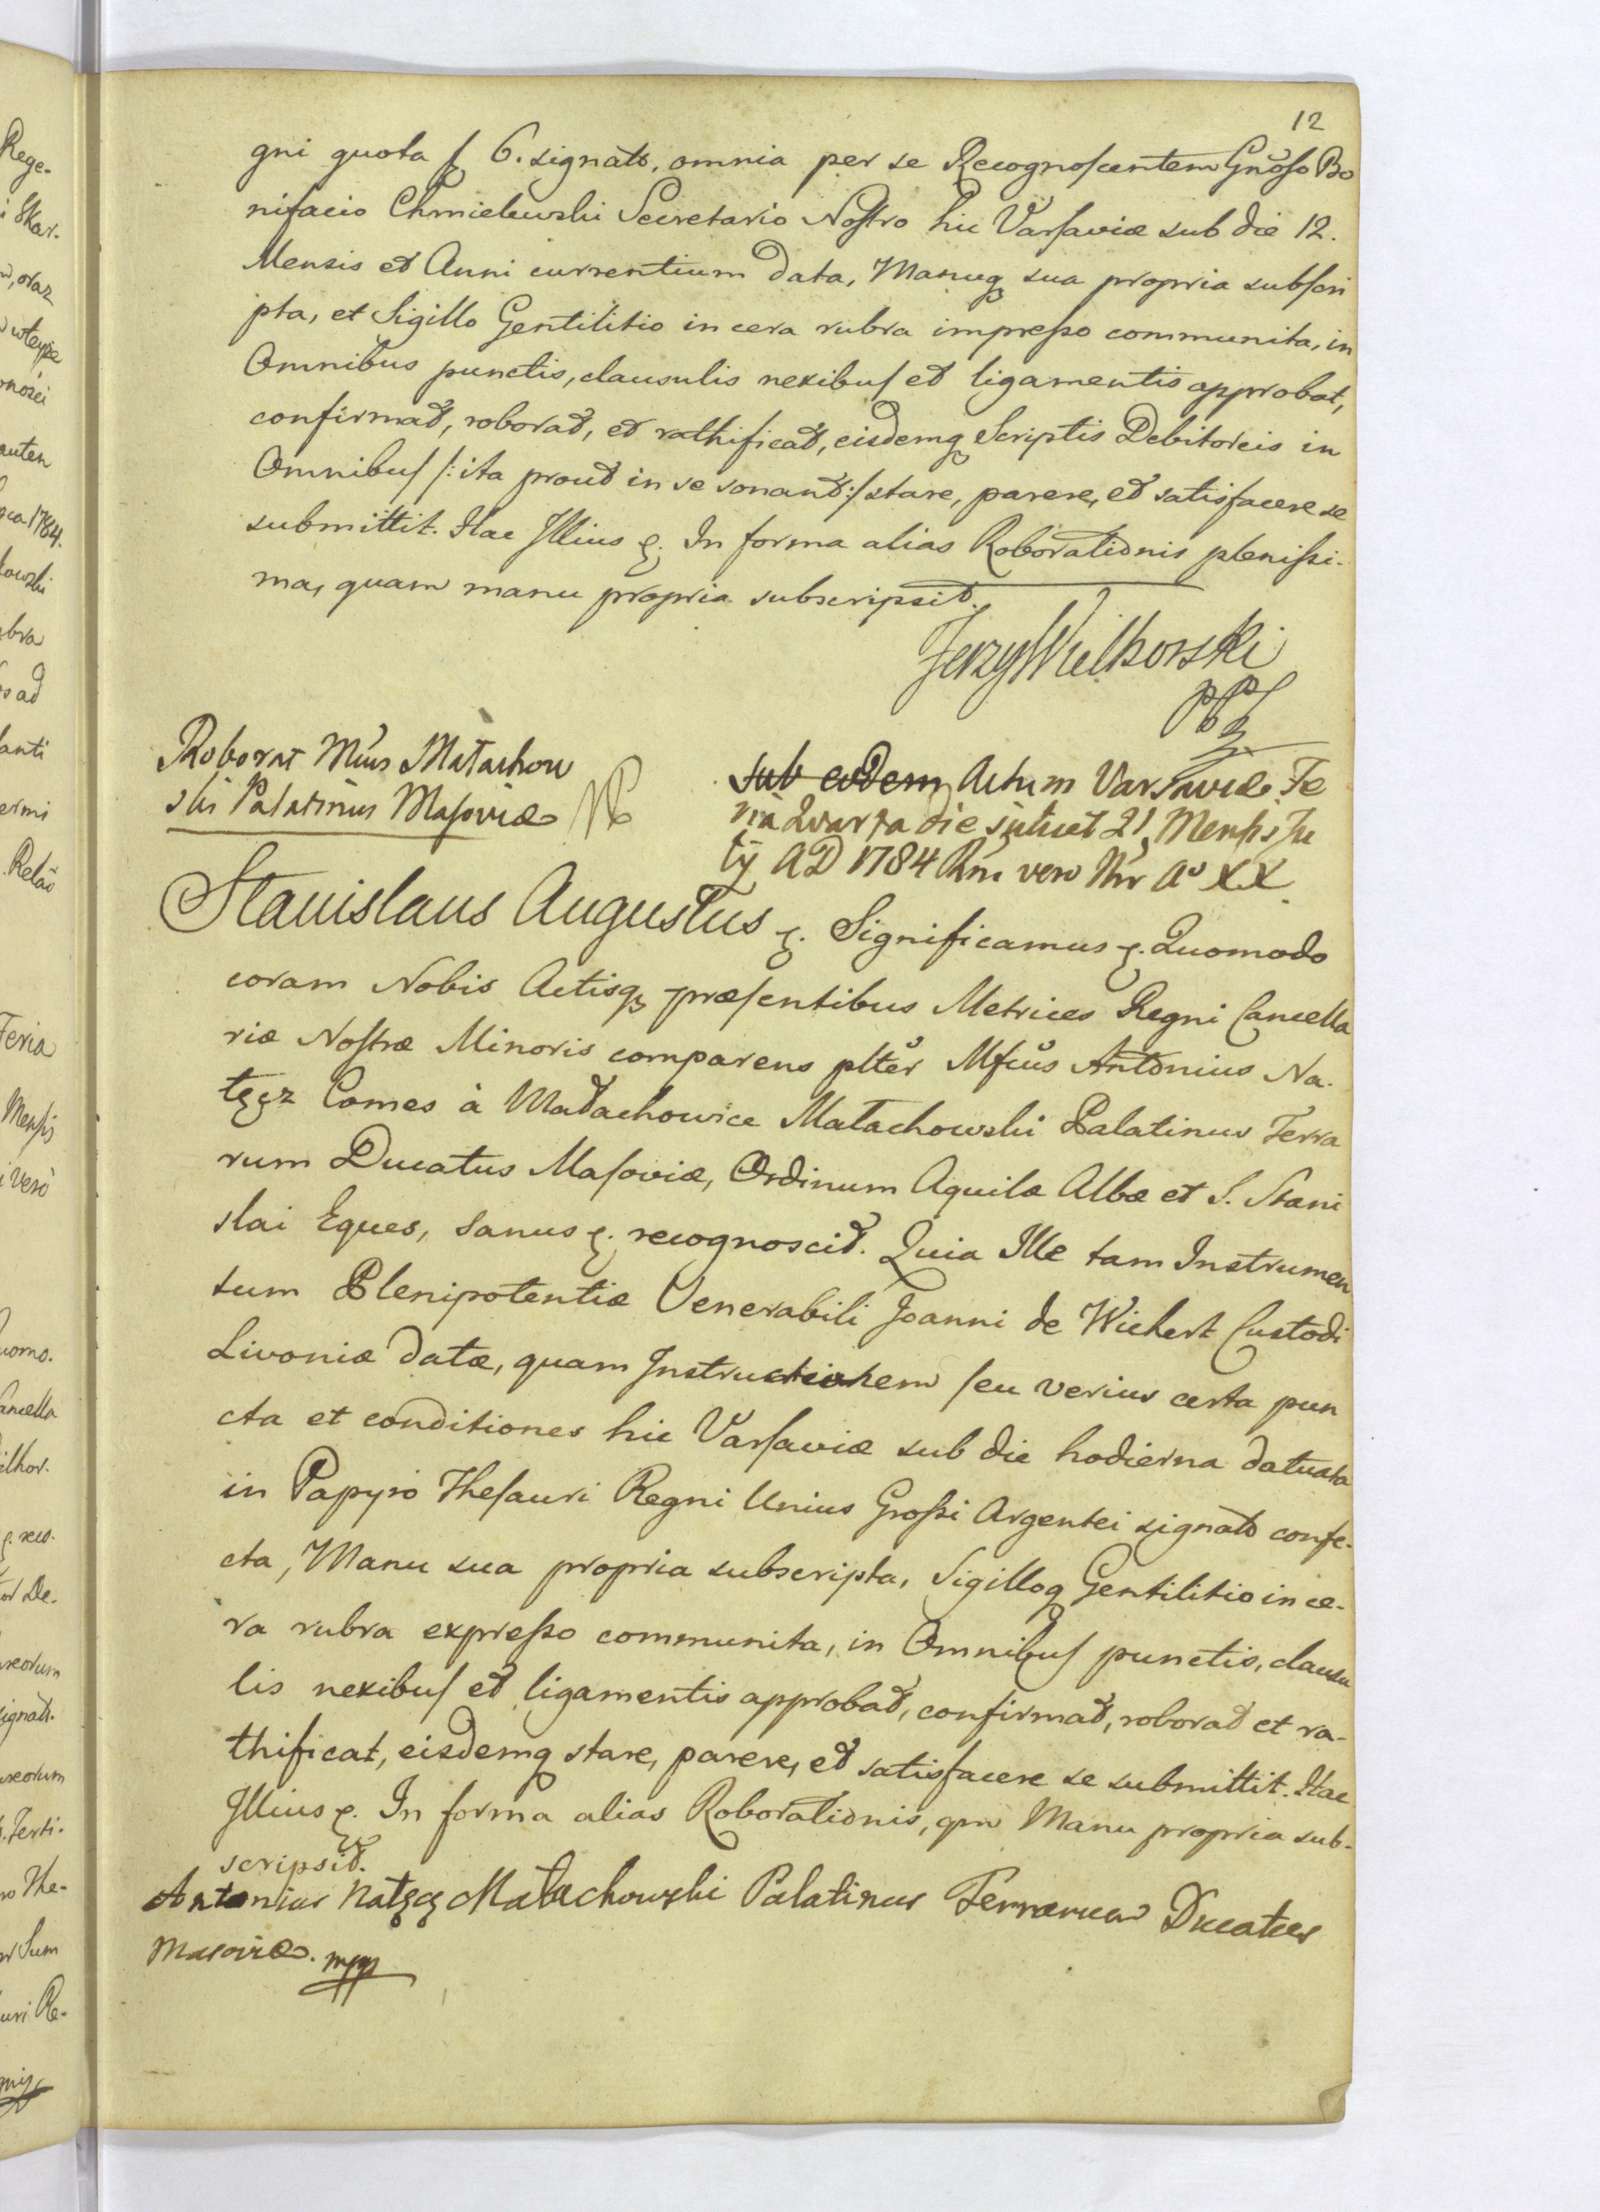 12
gni quota f 6. signato, omnia per se Recognoscentem Gnoso Bo
nifacio Chmielewski Secretario Nostro hic Varsaviæ sub die 12.
Mensis et Anni currentium data, Manuq sua propria subscri
pta, et Sigillo Gentilitio in cera rubra impresso communita, in
Omnibus punctis, clausulis nexibus et ligamentis approbat,
confirmat, roborat, et rathificat, eisdemq Scriptis Debitoreis in
Omnibus /: ita prout in se sonant :/ stare, parere, et satisfacere se
submittit. Hac Illius &. In forma alias Roborationis plenissi-
ma, quam manu propria subscripsit.
Jerzy Wielhorski
Roborat Mcus Małachow
ski Palatinus Masoviæ
sub eodem Actum Varsaviæ Fe
ria Quarta die scilicet 21 Mensis Ju
lij AD 1784 Rni vero Nri Ao XX.
Stanislaus Augustus &. Significamus &. Quomodo
coram Nobis Actisq præsentibus Metrices Regni Cancella
riæ Nostræ Minoris comparens plter Mfcus Antonius Na-
łęcz Comes à Małachowice Małachowski Palatinus Terra
rum Ducatus Masoviæ, Ordinum Aquilæ Albæ et S. Stani
slai Eques, sanus &. recognoscit. Quia Ille tam Instrumen
tum Plenipotentiæ Venerabili Joanni de Wichert Custodi
Livoniæ datæ, quam Instructionem seu verius certa pun
cta et conditiones hic Varsaviæ sub die hodierna datuata
in Papyro Thesauri Regni Unius Grossi Argentei signato confe-
cta, Manu sua propria subscripta, Sigilloq Gentilitio in ce-
ra rubra expresso communita, in Omnibus punctis, clausu
lis nexibus et ligamentis approbat, confirmat, roborat et ra-
thificat, eisdemq stare, parere, et satisfacere se submittit. Hac
Illius &. In forma alias Roborationis, qm Manu propria sub-
scripsit.
Antonius Nałęcz Małachowski Palatinus Terrarum Ducatus
Masoviæ. mpp